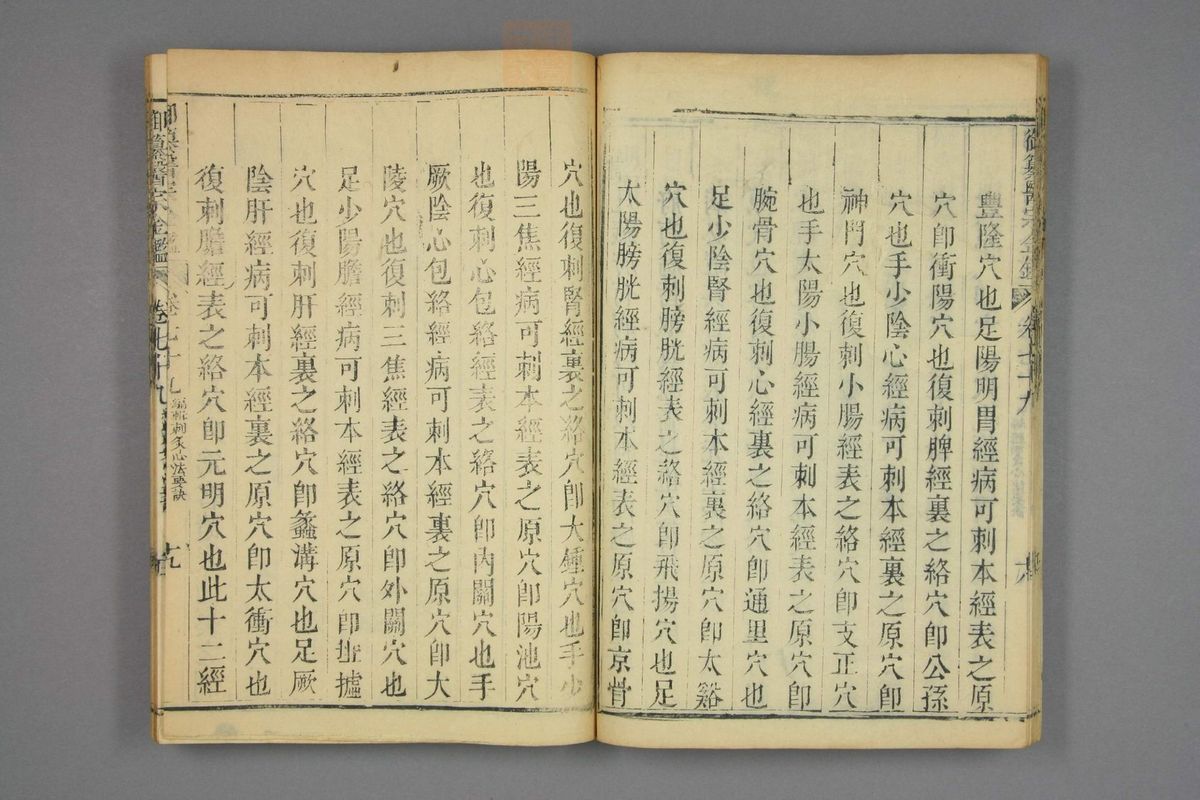 御纂醫宗金鑑 卷七十九
豐隆穴也足陽明胃經病可刺本經表之原
穴卽衝陽穴也復刺脾經裏之絡穴卽公孫
穴也手少陰心經病可刺本經裏之原穴卽
神門穴也復刺小腸經表之絡穴卽支正穴
也手太陽小腸經病可刺本經表之原穴卽
腕骨穴也復刺心經裏之絡穴卽通里穴也
足少陰腎經病可刺本經裏之原穴卽太谿
穴也復刺膀胱經表之絡穴卽飛揚穴也足
太陽膀胱經病可刺本經表之原穴卽京骨
穴也復刺腎經裏之絡穴卽大鍾穴也手少
陽三焦經病可刺本經表之原穴卽陽池穴
也復刺心包絡經表之絡穴卽內關穴也手
厥陰心包絡經病可刺本經裏之原穴卽大
陵穴也復刺三焦經表之絡穴卽外關穴也
足少陽膽經病可刺本經表之原穴卽坵墟
穴也復刺肝經裏之絡穴卽蠡溝穴也足厥
陰肝經病可刺本經裏之原穴卽太衝穴也
復刺膽經表之絡穴卽元明穴也此十二經
御纂醫宗金鑑 卷七十九 編輯刺灸心法要訣